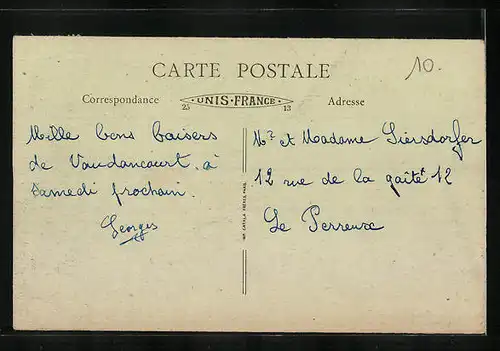 10.
CARTE POSTALE
Correspondance
UNIS-FRANCE
25
13
Adresse
Mille bons baisers
de Vaudancourt. à
samedi prochain.
Georges
Mr et Madame Siersdorfer
12 rue de la gaîté 12
Le Perreux
IMP. CATALA FRÈRES, PARIS